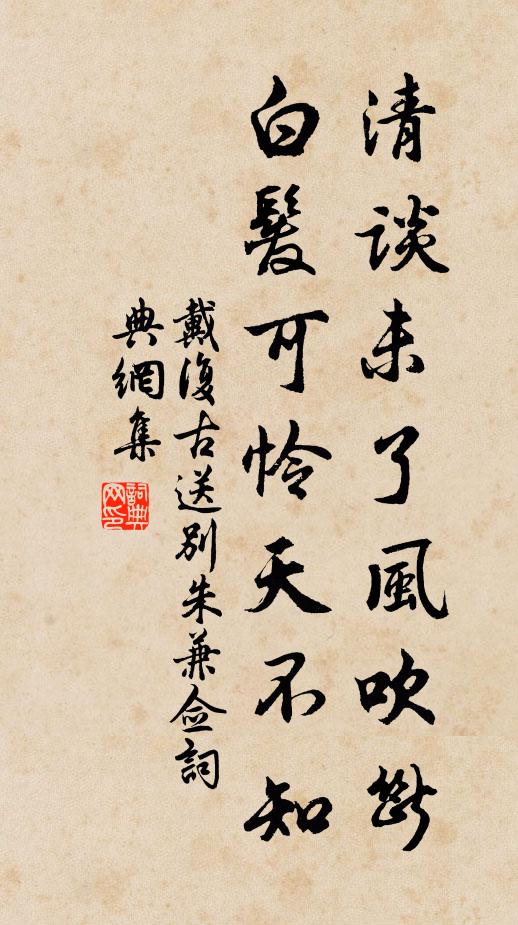 清談未了風吹斷
白髮可怜天不知
戴復古送別朱兼僉詞
典網集
詞典网印